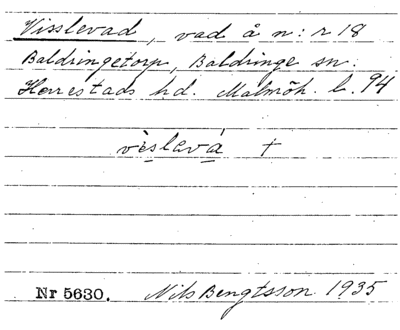 Visslevad, vad å n:r 18
Baldringetorp, Baldringe sn.
Herrestads hd. Malmöh. l. 94
vèslevá †
Nr 5630. Nils Bengtsson 1935